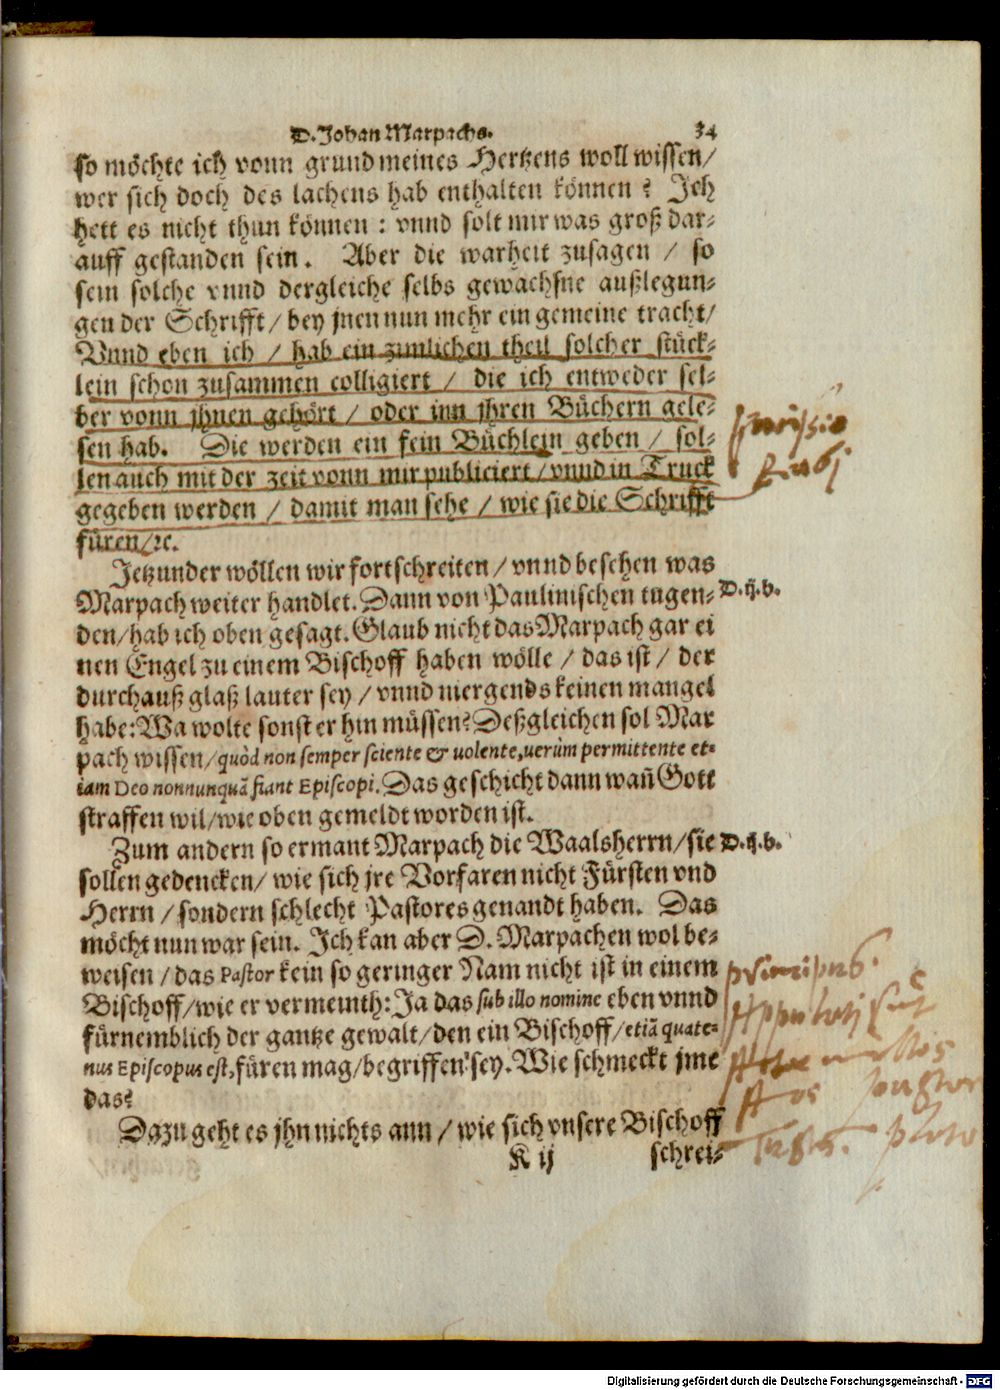 D. Johan Marpachs. 34
so möchte ich vonn grund meines Hertzens woll wissen/
wer sich doch des lachens hab enthalten können? Ich
hett es nicht thun können: vnnd solt mir was groß dar-
auff gestanden sein. Aber die warheit zusagen / so
sein solche vnnd dergleiche selbs gewachsne außlegun-
gen der Schrifft/ bey jnen nun mehr ein gemeine tracht/
Vnnd eben ich / hab ein zimlichen theil solcher stück-
lein schon zusammen colligiert / die ich entweder sel-
ber vonn jhnen gehört / oder inn jhren Büchern gele-
sen hab. Die werden ein fein Büchlein geben / sol-
len auch mit der zeit vonn mir publiciert / vnnd in Truck
gegeben werden / damit man sehe / wie sie die Schrifft
füren/ꝛc.
Jetzunder wöllen wir fortschreiten / vnnd besehen was
Marpach weiter handlet. Dann von Paulinischen tugen- D.ij.b.
den/ hab ich oben gesagt. Glaub nicht das Marpach gar ei
nen Engel zu einem Bischoff haben wölle / das ist / der
durchauß glaß lauter sey / vnnd niergends keinen mangel
habe: Wa wolte sonst er hin müssen? Deßgleichen sol Mar
pach wissen/ quòd non semper sciente & uolente, uerùm permittente et-
iam Deo nonnunquã fiant Episcopi. Das geschicht dann wañ Gott
straffen wil/ wie oben gemeldt worden ist.
Zum andern so ermant Marpach die Waalsherrn/ sie D.ij.b.
sollen gedencken/ wie sich jre Vorfaren nicht Fürsten vnd
Herrn / sondern schlecht Pastores genandt haben. Das
möcht nun war sein. Ich kan aber D. Marpachen wol be-
weisen / das Pastor kein so geringer Nam nicht ist in einem
Bischoff/ wie er vermeinth: Ja das sub illo nomine eben vnnd
fürnemblich der gantze gewalt/ den ein Bischoff/ etiã quate-
nus Episcopus est, füren mag/ begriffen sey. Wie schmeckt jme
das?
Dazu geht es jhn nichts ann / wie sich vnsere Bischoff
K ij schrei-
Digitalisierung gefördert durch die Deutsche Forschungsgemeinschaft - DFG